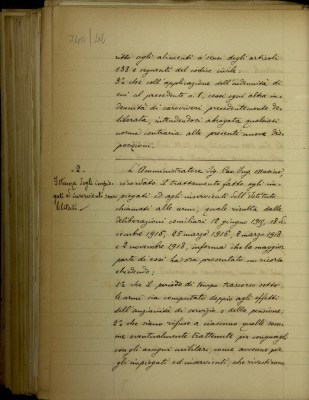 ritto agli alimenti a' sensi degli articoli
138 e seguenti del codice civile;
3° che coll'applicazione dell'indennità di
cui al precedente n. 1, cessi ogni altra in-
dennità di caroviveri precedentemente de-
liberata, intendendosi abrogata qualsiasi
norma contraria alle presenti nuove dis-
posizioni.
- 2 -
Istanza degli impie-
gati e inservienti
Militari
L'Amministratore Sig. Cav. Ing.
ricordato il trattamento fatto agli im-
piegati ed agli inservienti dell'Istituto
chiamati alle armi, quale risulta dalle
deliberazioni consiliari 12 giugno 1915,
1916, 25 marzo 1916, 8 marzo 1918
e 2 novembre 1918, informa che la maggior
parte di essi ha ora presentato un ricorso
chiedendo:
1° che il periodo di tempo trascorso sotto
le armi sia computato doppio agli effetti
dell'anzianità di servizio e della pensione;
2° che siano rifuse a ciascuno quelle som-
me eventualmente trattenute per conguagli
con gli assegni militari, come avvenne per
gli impiegati ed inservienti, che rivestirono